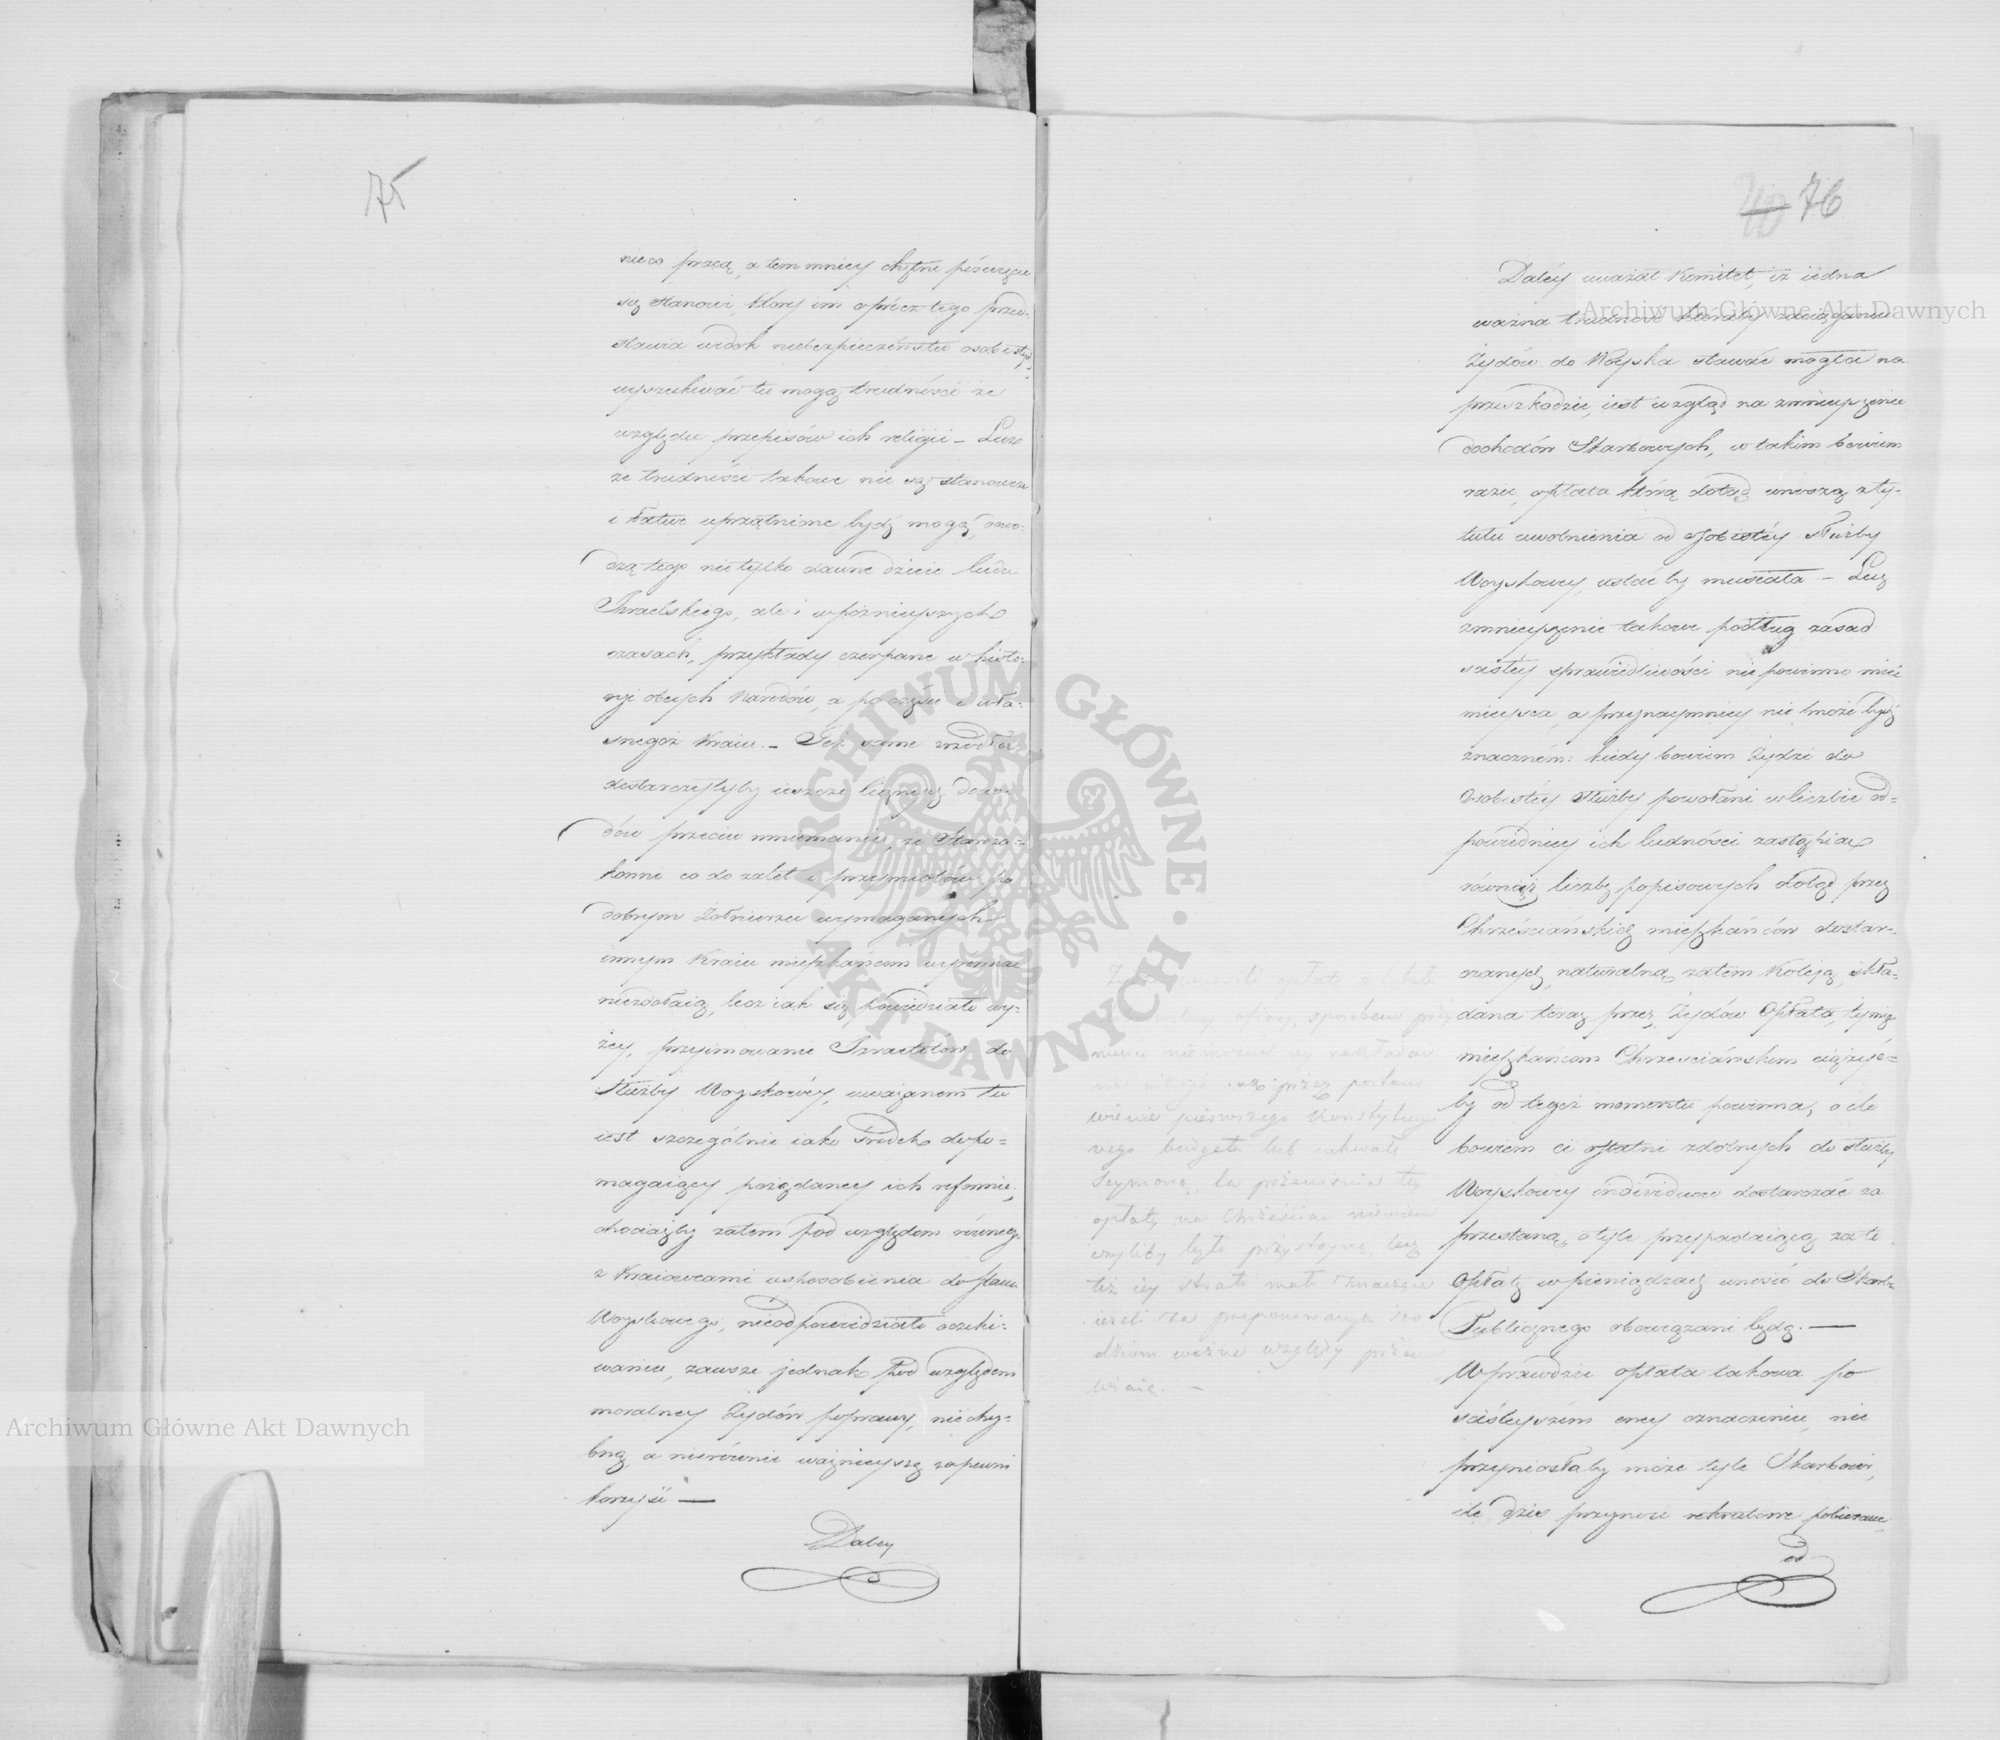 75
nieco pracą, a tem mniey chętne poświęcenie
się stanowi, który im oprócz tego przed-
stawia widok niebezpieczeństw osobistych
wyszukiwać tu mogą trudności ze
względu przepisów ich religii – Lecz
że trudności takowe nie są stanowcze
i łatwo uprzątnione bydź mogą, dowo-
dzą tego nie tylko dawne dzieie ludu
Izraelskiego, ale i w poźnieyszych
czasach, przykłady czerpane w histo-
ryi obcych Narodów, a po części i wła-
snegoż Kraiu. – Też same zrzodła
dostarczyłyby ieszcze licznych dowo-
dów przeciw mniemaniu, że Starozakonni
konni co do zalet i przymiotów po
dobrym Żołnierzu wymaganych
innym Kraiu mieszkańcom wyrównać
niezdołaią, lecz iak się powiedziało wy-
żey, przyimowanie Izraelitów do
służby Woyskowéy, uważanem tu
iest szczególnie iako środek dopo-
magaiący pożądaney ich reformie,
chociażby zatem pod względem równego
z Kraiowcami usposobienia do stanu
Woyskowego, nieodpowiedziało oczeki-
waniu, zawsze jednak pod względem
moralney Żydów poprawy, niechy-
bną, a nierównie ważnieyszą zapewni
korzyść —
Daley
76
Daléy uważał Komitet, iż iedna
ważna trudność któraby zaciąganiu
Żydów do Woyska stawać mogła na
przeszkodzie, iest wzgląd na zmnieyszenie
dochodów Skarbowych, w takim bowiem
razie, opłata którą dotąd wnoszą z ty-
tułu uwolnienia od osobistéy służby
Woyskowey, ustać by musiała – Lecz
zmnieyszenie takowe podług zasad
ścisłey sprawiedliwości nie powinno mieć
mieysca, a przynaymniey nie może bydź
znacznem: kiedy bowiem Żydzi do
Osobistéy służby powołani w liczbie od-
powiedniey ich ludności zastąpią
równąż liczbę popisowych dotąd przez
Chrześciańskich mieszkańców dostar-
czanych, naturalną zatem koleją, skła-
dana teraz przez Żydów Opłata, tymże
mieszkańcom Chrześciańskim ciążyć-
by od tegoż momentu powinna, o ile
bowiem ci ostatni zdolnych do służby
Woyskowey individuów dostarczać za
przestaną, o tyle przypadaiącą za to
Opłatę w pieniądzach wnosić do Skarbu
Publicznego obowiązani będą. —
Wprawdzie opłata takowa po
ściśleyszém oney oznaczeniu, nie
przyniosłaby może tyle Skarbowi,
ile dziś przynosi rekrutowe pobierane
od
opłatę
sposobem
przez postano
wienie pierwszego Konstytucyi
nego budżetu lub uchwałę
Seymową, la przeniesienia tey
opłaty na Chrześcian niewiem
czyliby była przystoyną, lecz
też iey strata mało znacząca
ieżeli za proponowanym śro
dkiem ważne względy przema
wiaią. –
Archiwum Główne Akt Dawnych
Archiwum Główne Akt Dawnych
ARCHIWUM GŁÓWNE AKT DAWNYCH